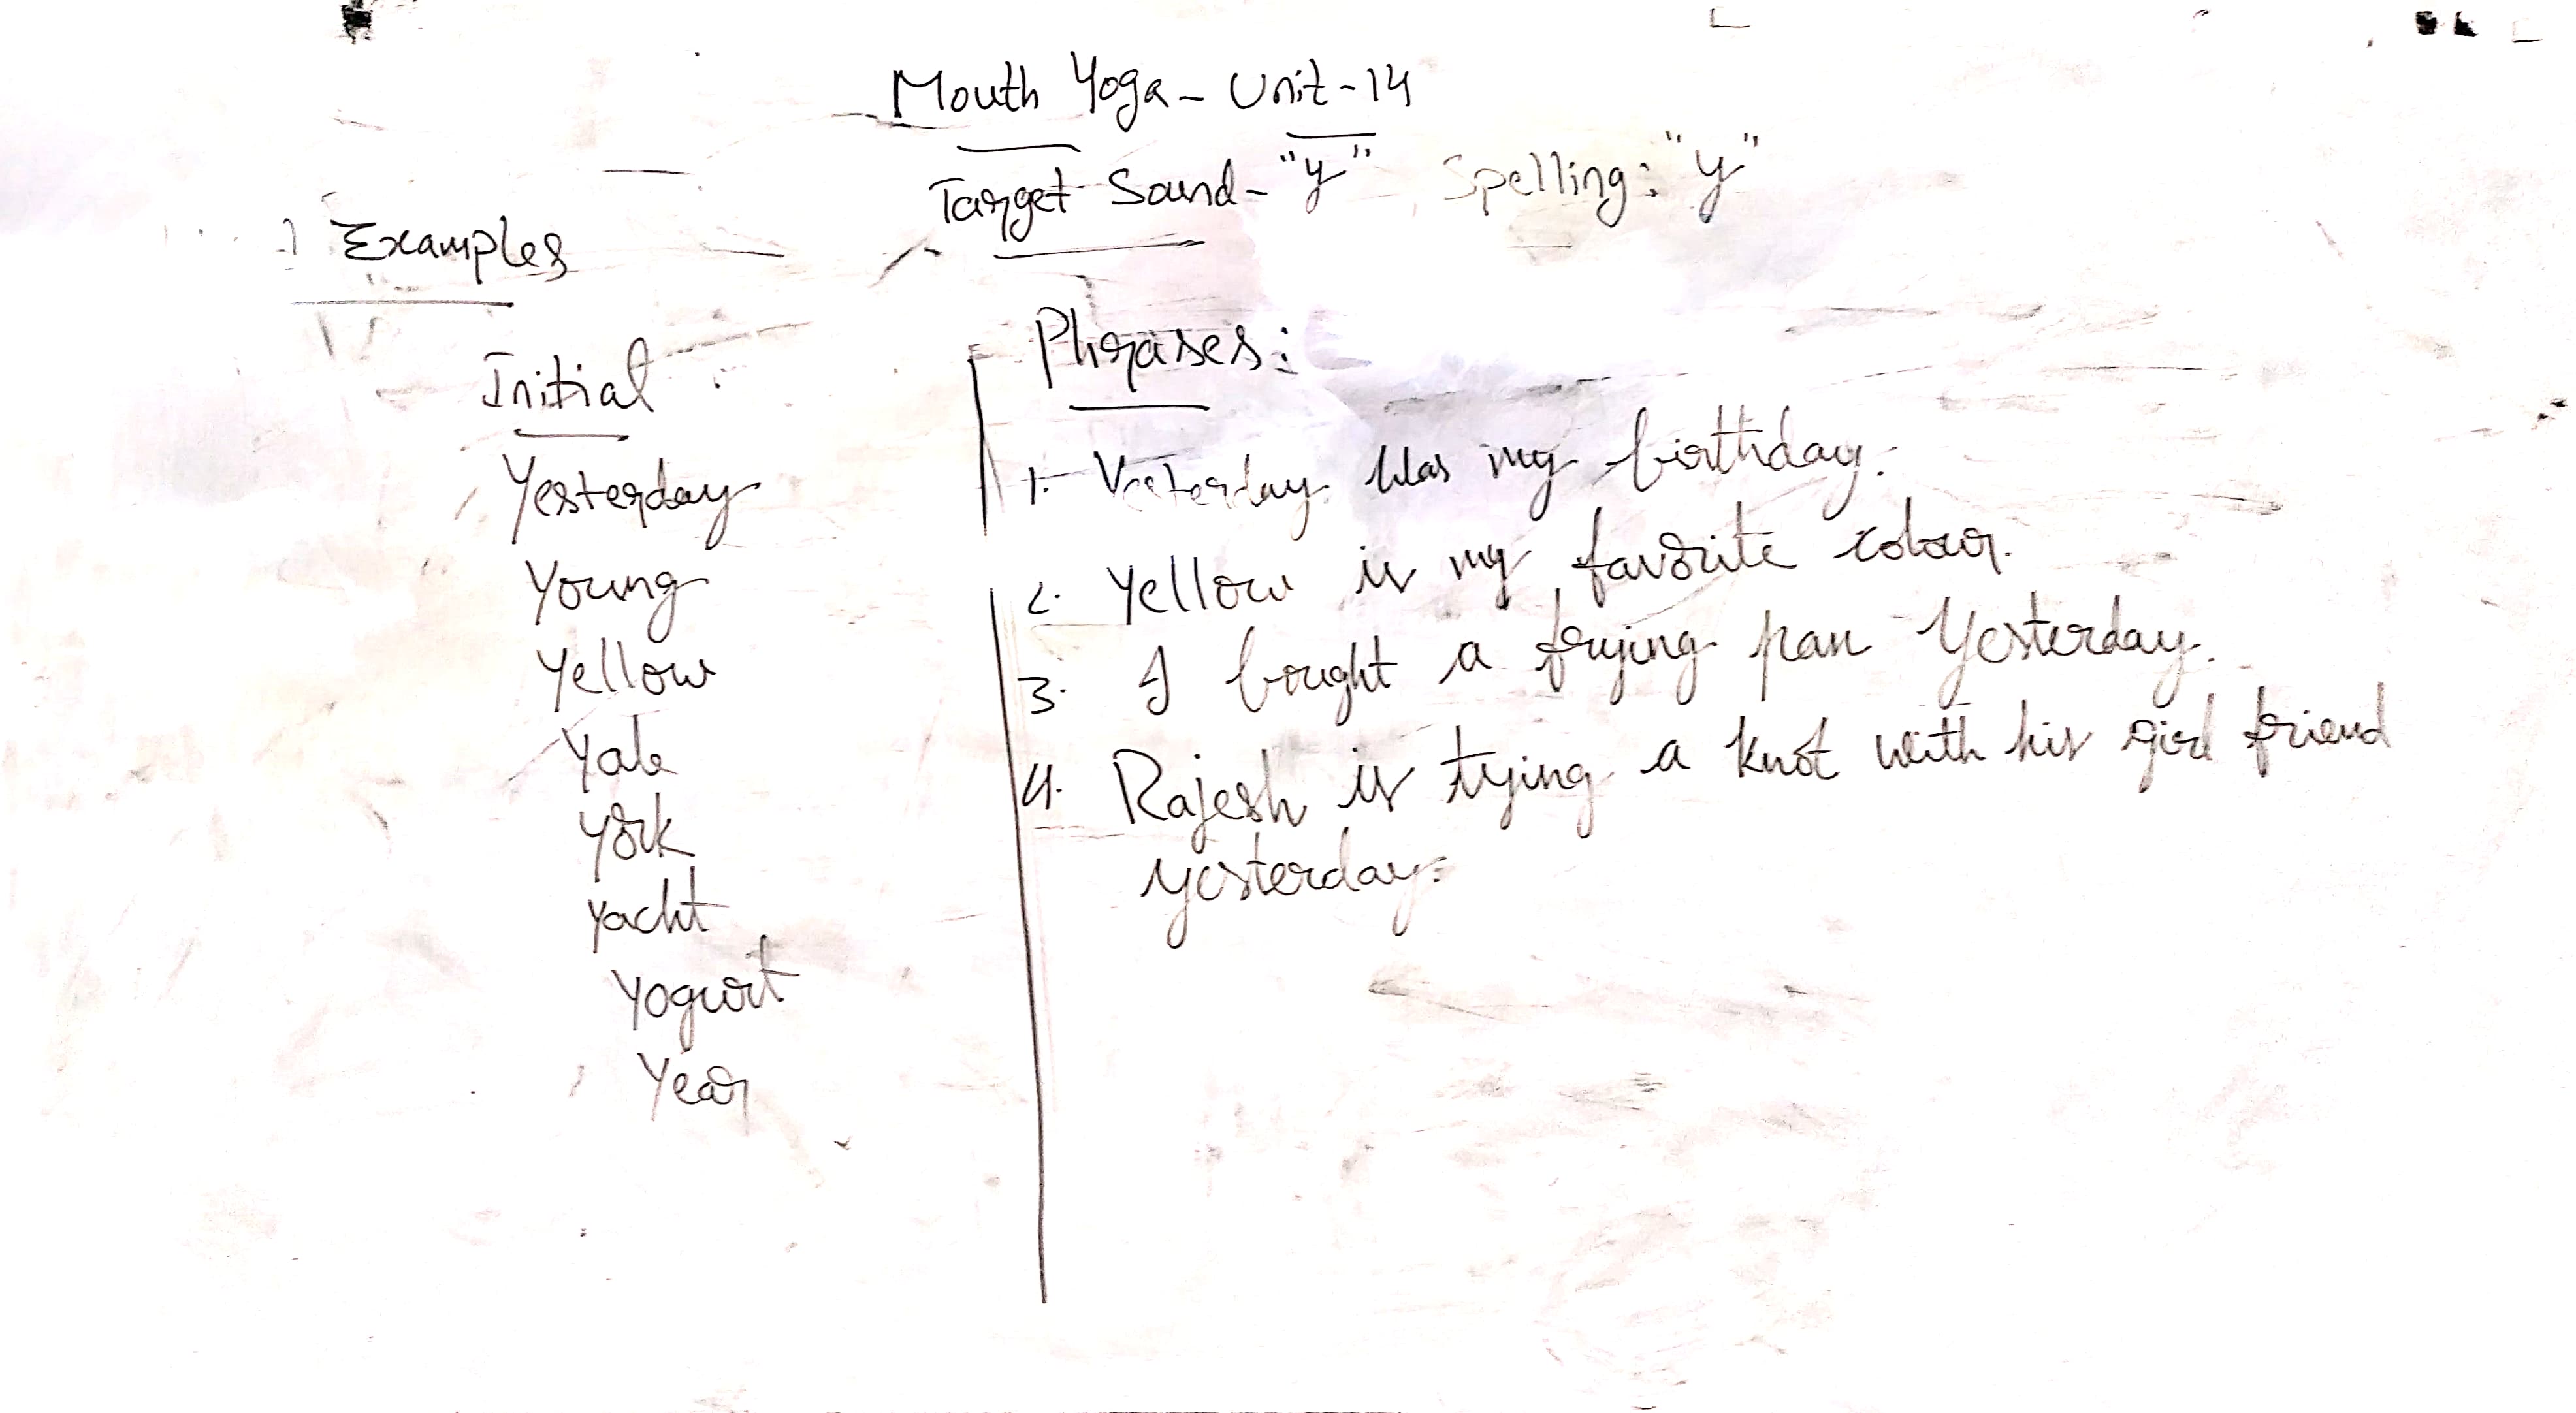 Mouth Yoga - Unit - 14
Target Sound - "y" Spelling: "y"
Examples
Initial
Yesterday
Young
Yellow
Yale
York
Yacht
Yogurt
Year
Phrases:
1. Yesterday was my birthday.
2. Yellow is my favorite colour.
3. I bought a frying pan Yesterday.
4. Rajesh is tying a knot with his girl friend
yesterday.